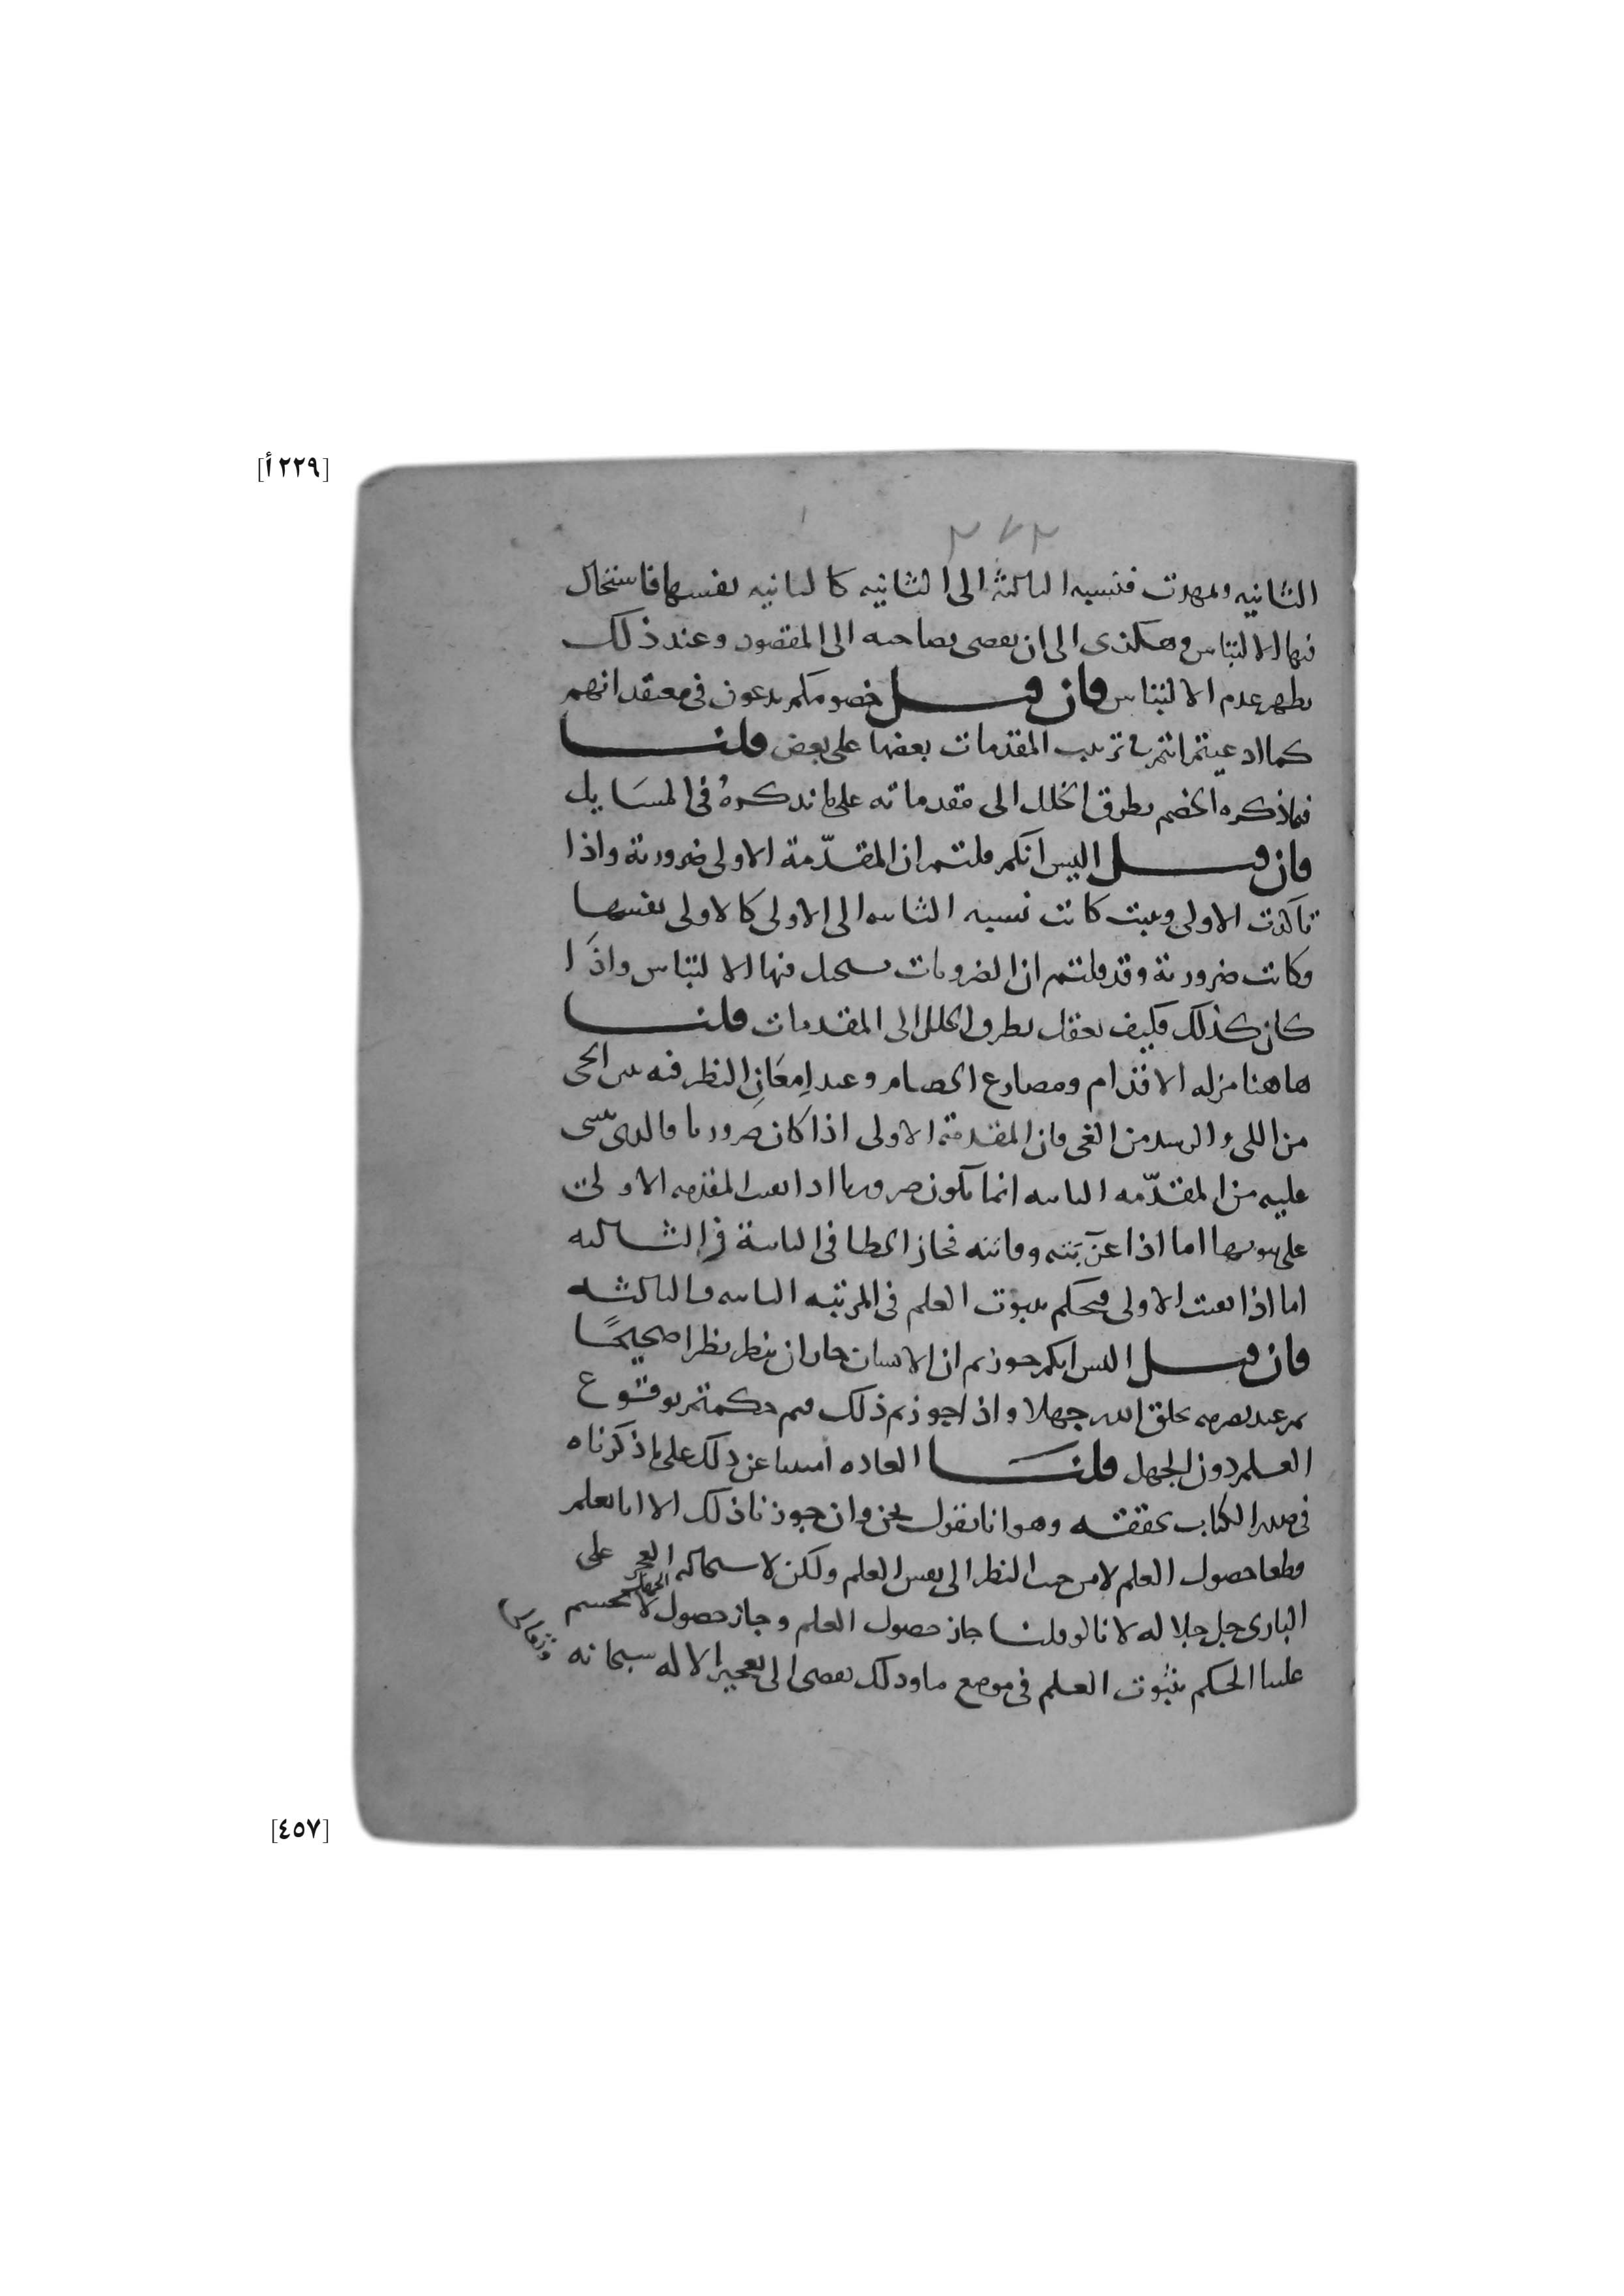 [٢٢٩أ]
٢٧٢
الثانيه ومهدت فنسبه الثالثة الى الثانيه كالثانيه بفسها فاستحال
فيها الالتباس وهكذى الى ان يفضى بصاحبه الى المقصود وعند ذلك
يظهر عدم الالتباس فان قيل خصومكم يدعون فى معتقداتهم
كما ادعيتم انتم ترتيب المقدمات بعضها على بعض قلنا
فما ذكره الخصم يطرق الخلل الى مقدماته على ما نذكرهُ فى المسَايل
فان قيل اليس انكم قلتم ان المقدّمة الاولى ضرورية واذا
تأكدت الاولى وثبت كانت نسبه الثانيه الى الاولى كالاولى بفسها
وكانت ضرورية وقد قلتم ان الضروريات يستحيل فيها الالتباس واذَا
كان كذلك فكيف يعقل تطرق الخلل الى المقدمات قلنا
هاهنا مزله الاقدام ومصارع الخصام وعند اِمعَانِ النظر فيه يتبين الحى
من اللى والرشد من الغى فان المقدمة الاولى اذا كان ضروريا فالذى يبنى
عليه من المقدّمه الثانيه انما يكون ضروريا اذا بقيت المقدمه الاولى
على ثبوتها اما اذا عزبت وفاتته فجاز الخطا فى الثانية فى الثالثه
اما اذا بقيت الاولى فيحكم بثبوت العلم فى المرتبه الثانيه والثالثه
فان قيل اليس انكم جوزتم ان الانسان جاز ان ينظر نظرا صحيحًا
ثم عند تصرمه يخلق الله جهلا واذا جوزتم ذلك فبم حكمتم بوقوع
العلم دون الجهل قلنَا العاده امنتنا عن ذلك على ما ذكرناه
فى صدر الكتاب بحقيقته وهو انا نقول نحن وان جوزنا ذلك الا انا نعلم
قطعا حصول العلم لا من حيث النظر الى نفس العلم ولكن لاستحاله العجز على
البارى جل جلاله لانا لو قلنا جاز حصول العلم وجاز حصول الجهل لانحسم
علينا الحكم بثبوت العلم فى موضع ما وذلك يفضى الى تعجيز الاله سبحانه
[٤٥٧]